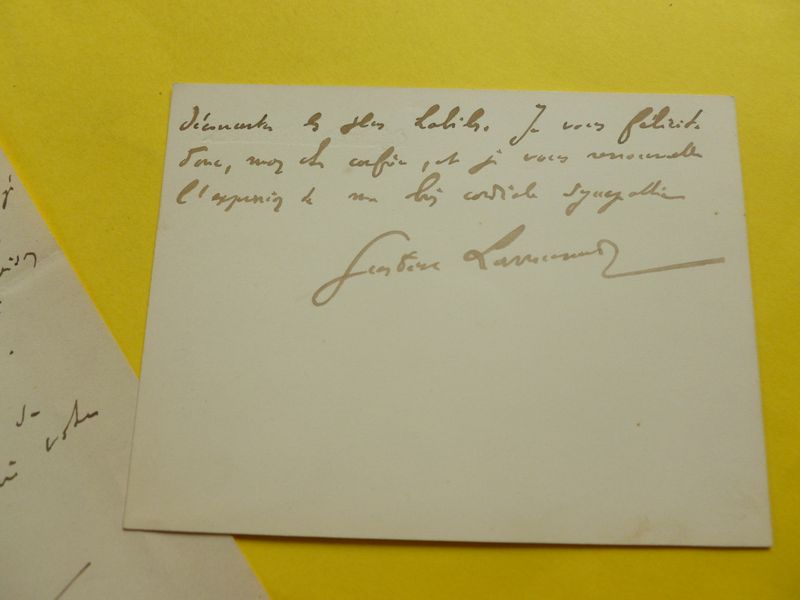 déconcerter les plus habiles. Je vous félicite
donc, mon cher confrère, et je vous renouvelle
l'expression de ma bien cordiale sympathie
Gustave Larroumet
votre